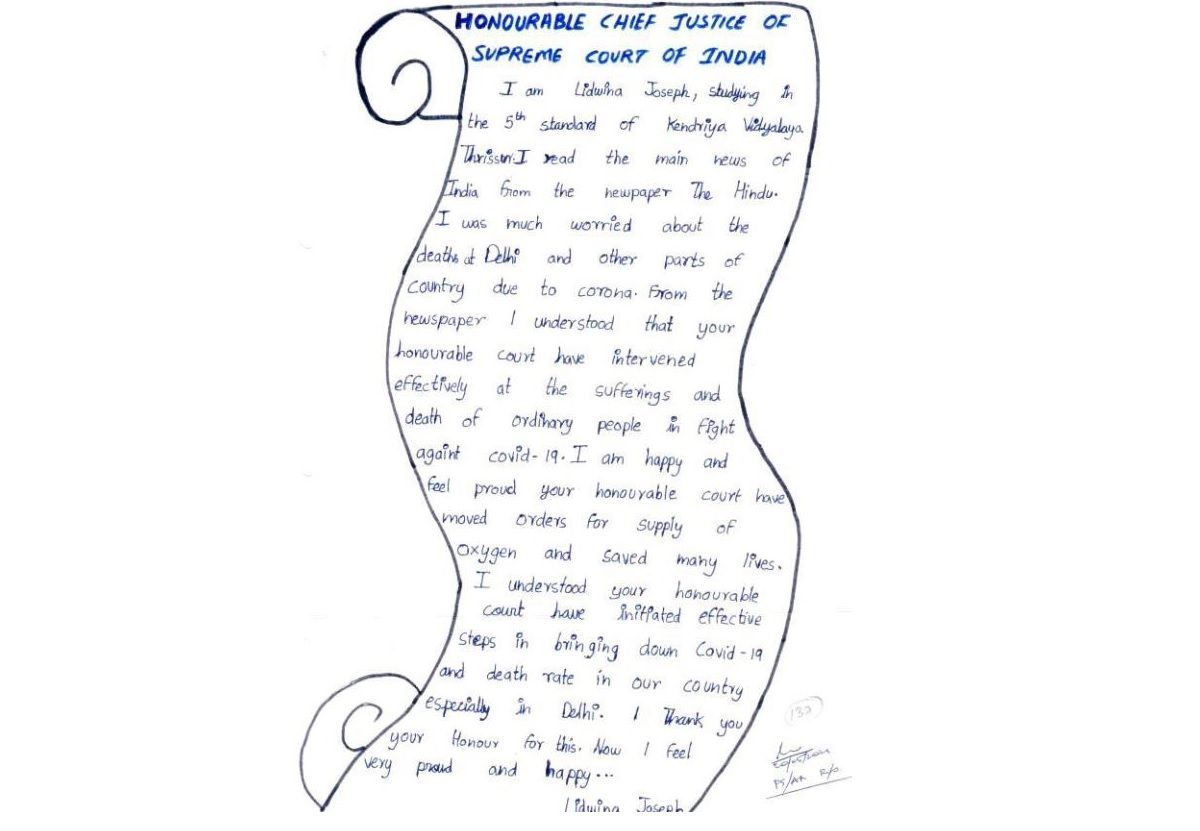 HONOURABLE CHIEF JUSTICE OF
SUPREME COURT OF INDIA
I am Lidwina Joseph, studying in
the 5th standard of Kendriya Vidyalaya
Thrissur. I read the main news of
India from the newpaper The Hindu.
I was much worried about the
deaths at Delhi and other parts of
country due to corona. From the
newspaper I understood that your
honourable court have intervened
effectively at the sufferings and
death of ordinary people in fight
againt covid-19. I am happy and
feel proud your honourable court have
moved orders for supply of
oxygen and saved many lives.
I understood your honourable
court have initiated effective
steps in bringing down Covid-19
and death rate in our country
especially in Delhi. I Thank you
your Honour for this. Now I feel
very proud and happy...
Lidwina Joseph
132